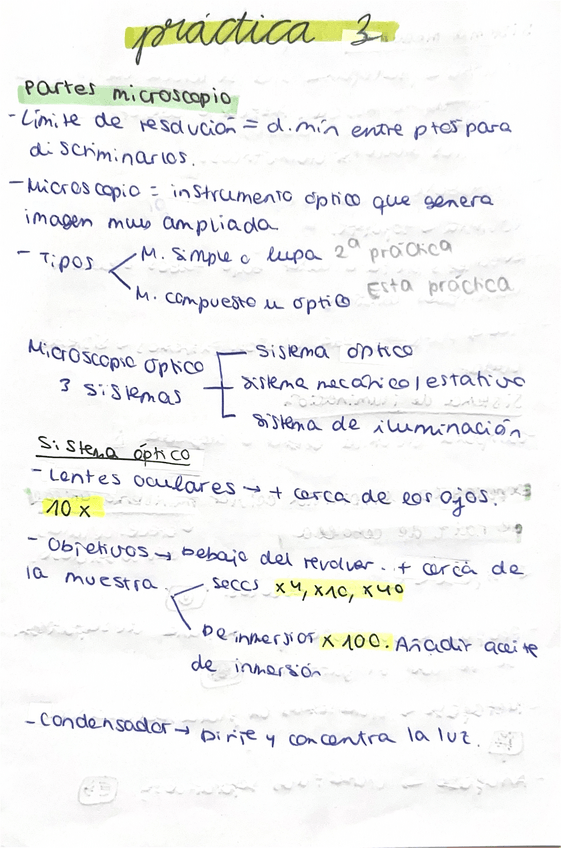 práctica 3
Partes microscopio
- Límite de resolución = d.mín entre ptos para
discriminarlos.
- Microscopio = instrumento óptico que genera
imagen muy ampliada
- Tipos
M. Simple o lupa 2ª práctica
M. compuesto u óptico Esta práctica
Microscopio óptico
3 sistemas
sistema óptico
sistema mecánico/estativo
sistema de iluminación
Sistema óptico
- Lentes oculares → + cerca de los ojos.
10 x
- Objetivos → Debajo del revolver. + cerca de
la muestra.
secos x4, x10, x40
De inmersión x 100. Añadir aceite
de inmersión
- Condensador → Dirije y concentra la luz.